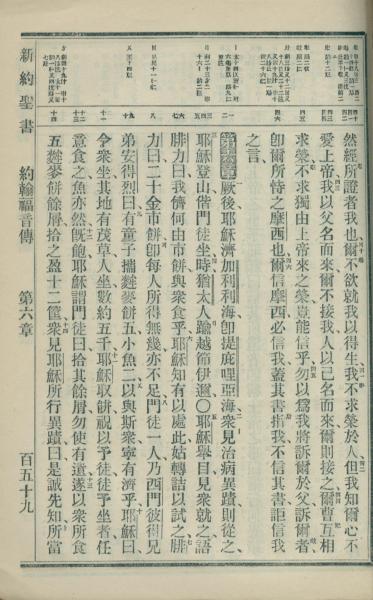 然經所證者我也爾不欲就我以得生我不求榮於人但我知爾心不
愛上帝我以父名而來爾不接我人以己名而來爾則接之爾曹互相
求榮不求獨由上帝來之榮豈能信乎勿以爲我將訴爾於父訴爾者
卽爾所恃之摩西也爾信摩西必信我蓋其書指我不信其書詎信我
之言
第六章 厥後耶穌濟加利利海卽提庇哩亞海衆見治病異蹟則從之
耶穌登山偕門徒坐時猶太人踰越節伊邇〇耶穌舉目見衆就之語
腓力曰我儕何由市餅與衆食乎耶穌知有以處此姑轉詰以試之腓
力曰二十金市餅卽每人所得無幾亦不足門徒一人乃西門彼得兄
弟安得烈曰有童子攜麰麥餅五小魚二以與斯衆寧有濟乎耶穌曰
令衆坐其地有茂草人坐數約五千耶穌取餅祝以予徒徒予坐者任
意食之魚亦然旣飽耶穌謂門徒曰拾其餘屑勿使有遺遂以衆所食
五麰麥餅餘屑拾之盈十二筐衆見耶穌所行異蹟曰是誠先知所當
新約聖書 約翰福音傳 第六章 百五十九